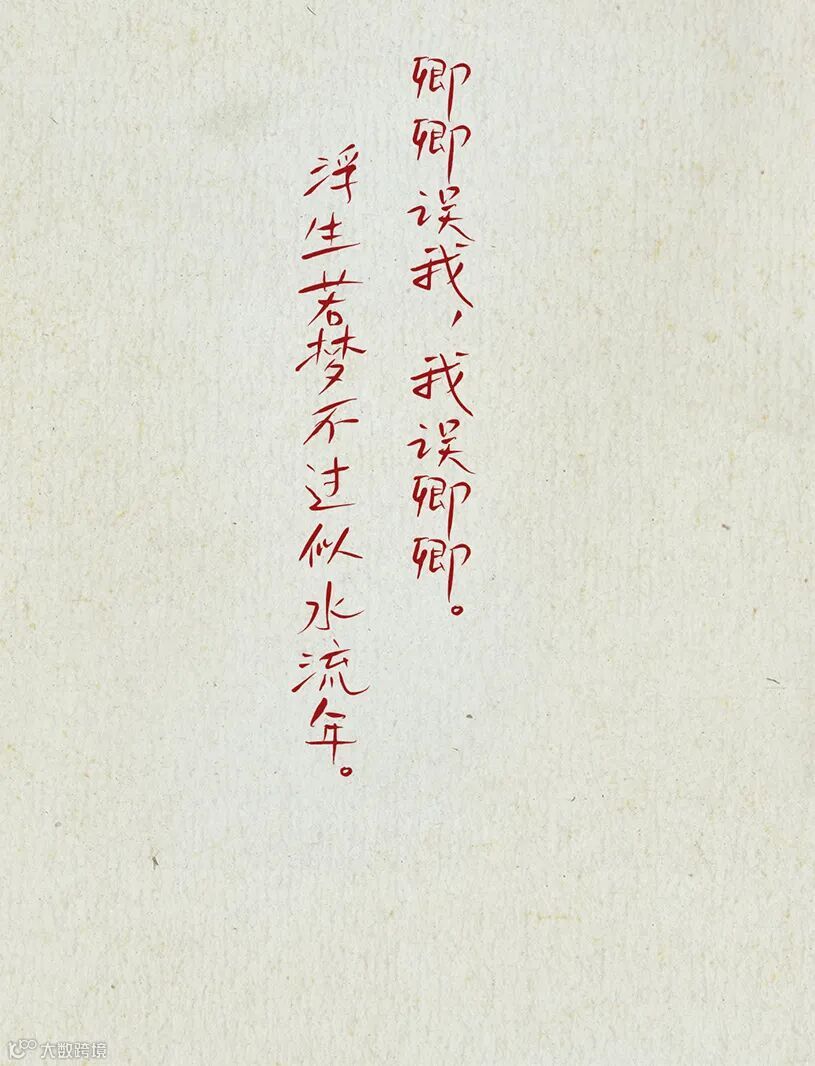 卿卿误我，我误卿卿。
浮生若梦不过似水流年。
大数跨境